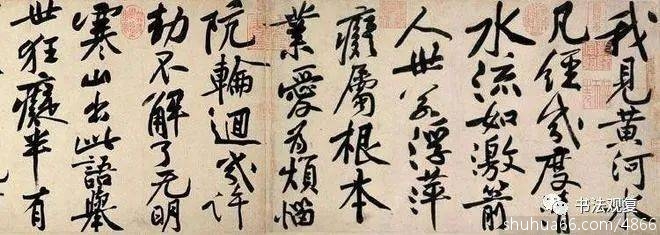 我見黃河水
凡經幾度清
水流如激箭
人世若浮萍
癡屬根本
業愛為煩惱
阬輪迴幾許
劫不解了无明
寒山出此語舉
世狂癡半有
书法观复
shuhua66.com/4866